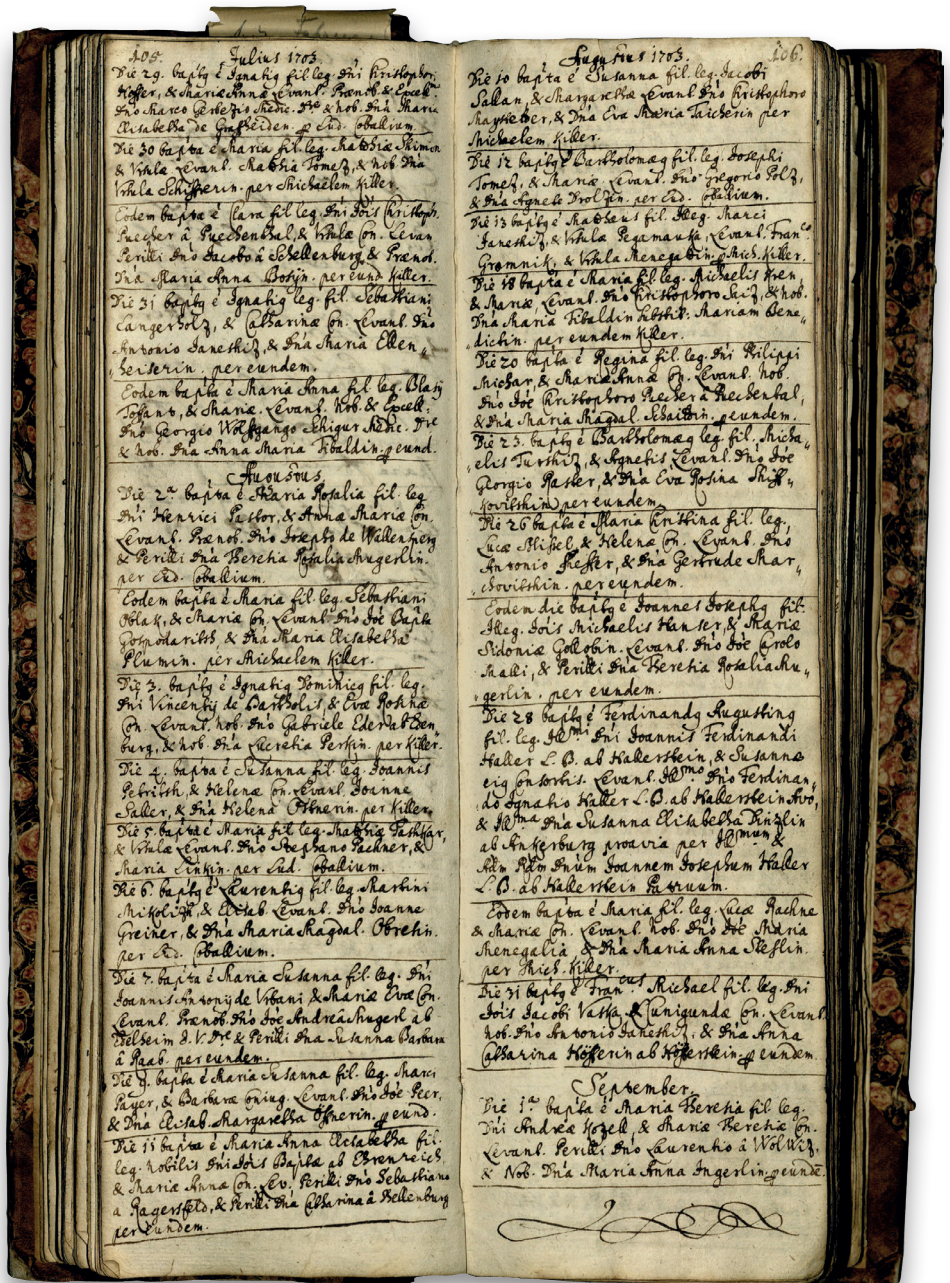 105. Julius 1703.
Die 29. bapt9 é Ignati9 fil. leg. Dni Christophori
Höffer, & Mariæ Annæ Levant. Prænob. & Excell.
Dno Marco Gerbezio Medic. Dre & nob. Dna Maria
Elisabetha de Graffheiden. p Eud. Coballium.
Die 30 bapta é Maria fil. leg. Matthiæ Skimon
& Vrsulæ Levant. Matthia Tomez, & nob. Dna
Vrsula Schifferin. per Michaelem Killer.
Eodem bapta é Clara fil leg. Dni Jois Christoph.
Puecher à Puechenthal, & Vrsulæ Con. Levan
Perilli Dno Jacobo à Schellenburg & Prænob.
Dna Maria Anna Bosijn. per eund Killer.
Die 31 bapt9 é Ignati9 leg. fil. Sebastiani
Langerholz, & Catharinæ Con. Levant. Dno
Antonio Janeshiz, & Dna Maria Ellen„
„heiserin. per eundem.
Eodem bapta é Maria Anna fil. leg. Blasij
& Mariæ. Levant. Nob. & Excell.
Dno Georgio Wolffgango Schigur Medic. Dre
& nob. Dna Anna Maria Tibaldin. p eund.
Augustus.
Die 2a bapta é Maria Rosalia fil. leg
Dni Henrici Pastor, & Annæ Mariæ Con.
Levant. Prænob. Dno Josepho de Wallensperg
& Perilli Dna Theresia Rosalia Mugerlin.
per Eud. Coballium.
Eodem bapta é Maria fil. leg. Sebastiani
Oblak, & Mariæ Con. Levant. Dno Joe Bapta
Gospodaritsh, & Dna Maria Elisabetha
Plumin. per Michaelem Killer.
Die 3. bapt9 é Ignati9 Dominic9 fil. leg.
Dni Vincentij de Bartholis, & Evæ Rosinæ
Con. Levant. nob. Dno Gabriele Eder ab Eden„
burg, & nob. Dna Lucretia Perkin. per Killer.
Die 4. bapta é Susanna fil. leg. Joannis
Petritsh, & Helenæ Con. Levant. Joanne
Saller, & Dna Helena Ostnerin. per Killer.
Die 5. bapta é Maria fil. leg. Matthiæ Tashkar,
& Vrsulæ Levant. Dno Stephano Pachner, &
Maria Linkin. per Eud. Coballium.
Die 6. bapt9 é Laurenti9 fil. leg. Martini
& Elisab. Levant. Dno Joanne
Greiner, & Dna Maria Magdal. Obretin.
per Eud. Coballium.
Die 7. bapta é Maria Susanna fil. leg. Dni
Joannis Antonij de Vrbani & Mariæ Evæ Con.
Levant. Prænob. Dno Joe Andrea Mugerl ab
Edelheim J. V. Dre & Perilli Dna Susanna Barbara
à Raab. per eundem.
Die 9. bapta é Maria Susanna fil. leg. Marci
Payer, & Barbaræ Coniug. Levant. Dno Joe Peer,
& Dna Elisab. Margaretha Ostnerin. p eund.
Die 11 bapta é Maria Anna Elisabetha fil.
leg. nobilis Dni Jois Baptæ ab Ehrenreich
& Mariæ Annæ Con. Lev. Perilli Dno Sebastiano
a Ragersfeld, & Perilli Dna Catharina à Bellenburg
per eundem.
Augustus 1703. 106.
Die 10 bapta é Susanna fil. leg. Jacobi
Sallan, & Margarethæ Levant. Dno Christophoro
& Dna Eva Maria Taicherin per
Michaelem Killer.
Die 12 bapt9 é Bartholomæ9 fil. leg. Josephi
Tomez, & Mariæ. Levant. Dno Gregorio Polz,
& Dna Agnete Drolzin. per Eud. Coballium.
Die 13 bapt9 é Mattheus fil. Illeg. Marci
Janeshiz, & Vrsulæ Pegamauka, Levant. Franco
Gromnik, & Vrsula Menegattin. p Mich. Killer.
Die 18 bapta é Maria fil. leg. Michaelis Kren,
& Mariæ, Levant. Dno Christophoro Saiz, & nob.
Dna Maria Tibaldin Mariam Bene„
„dictin. per eundem Killer.
Die 20 bapta é Regina fil. leg. Dni Philippi
Michar, & Mariæ Annæ Con. Levant. Nob.
Dno Joe Christophoro Puecher à Puechenthal,
& Dna Maria Magdal. Schaittin. p eundem.
Die 23. bapt9 é Bartholomæ9 leg. fil. Micha„
„elis Turshiz, & Agnetis Levant. Dno Joe
Georgio Raster, & Dna Eva Rosina Shiff„
„kovitshin per eundem.
Die 26 bapta é Maria Christina fil. leg,
Lucæ Missel, & Helenæ Con. Levant. Dno
Antonio Pfeffer, & Dna Gertrude Mar„
„chovitshin. per eundem.
Eodem die bapt9 é Joannes Joseph9 fil.
Illeg. Jois Michaelis Hanser, & Mariæ
Sidoniæ Gollobin. Levant. Dno Joe Carolo
Malli, & Perilli Dna Theresia Rosalia Mu„
„gerlin. per eundem.
Die 28 bapt9 é Ferdinand9 Augustin9
fil. leg. Illmi Dni Joannis Ferdinandi
Haller L. B. ab Hallerstein, & Susannæ
ei9 Consortis. Levant. Illmo Dno Ferdinan„
„do Ignatio Haller L. B. ab Hallerstein Avo,
& Illma Dna Susanna Elisabetha Dinzlin
ab Ankerburg proavia per Illmum &
Adm Rdm Dnum Joannem Josephum Haller
L. B. ab Hallerstein Patruum.
Eodem bapta é Maria fil. leg. Lucæ Rachne
& Mariæ Con. Levant. nob. Dno Joe Maria
Menegalia, & Dna Maria Anna Steflin.
per Mich. Killer.
Die 31 bapt9 é Francus Michael fil. leg. Dni
Jois Jacobi Vatka, & Cunigundæ Con. Levant.
Nob. Dno Antonio Janeshiz, & Dna Anna
Catharina Höfferin ab Höfferstein. p eundem.
September.
Die 1a bapta é Maria Theresia fil. leg.
Dni Andreæ Kozell, & Mariæ Theresiæ Con.
Levant. Perilli Dno Laurentio à Wolwiz,
& Nob. Dna Maria Anna Ingerlin. p eundē.